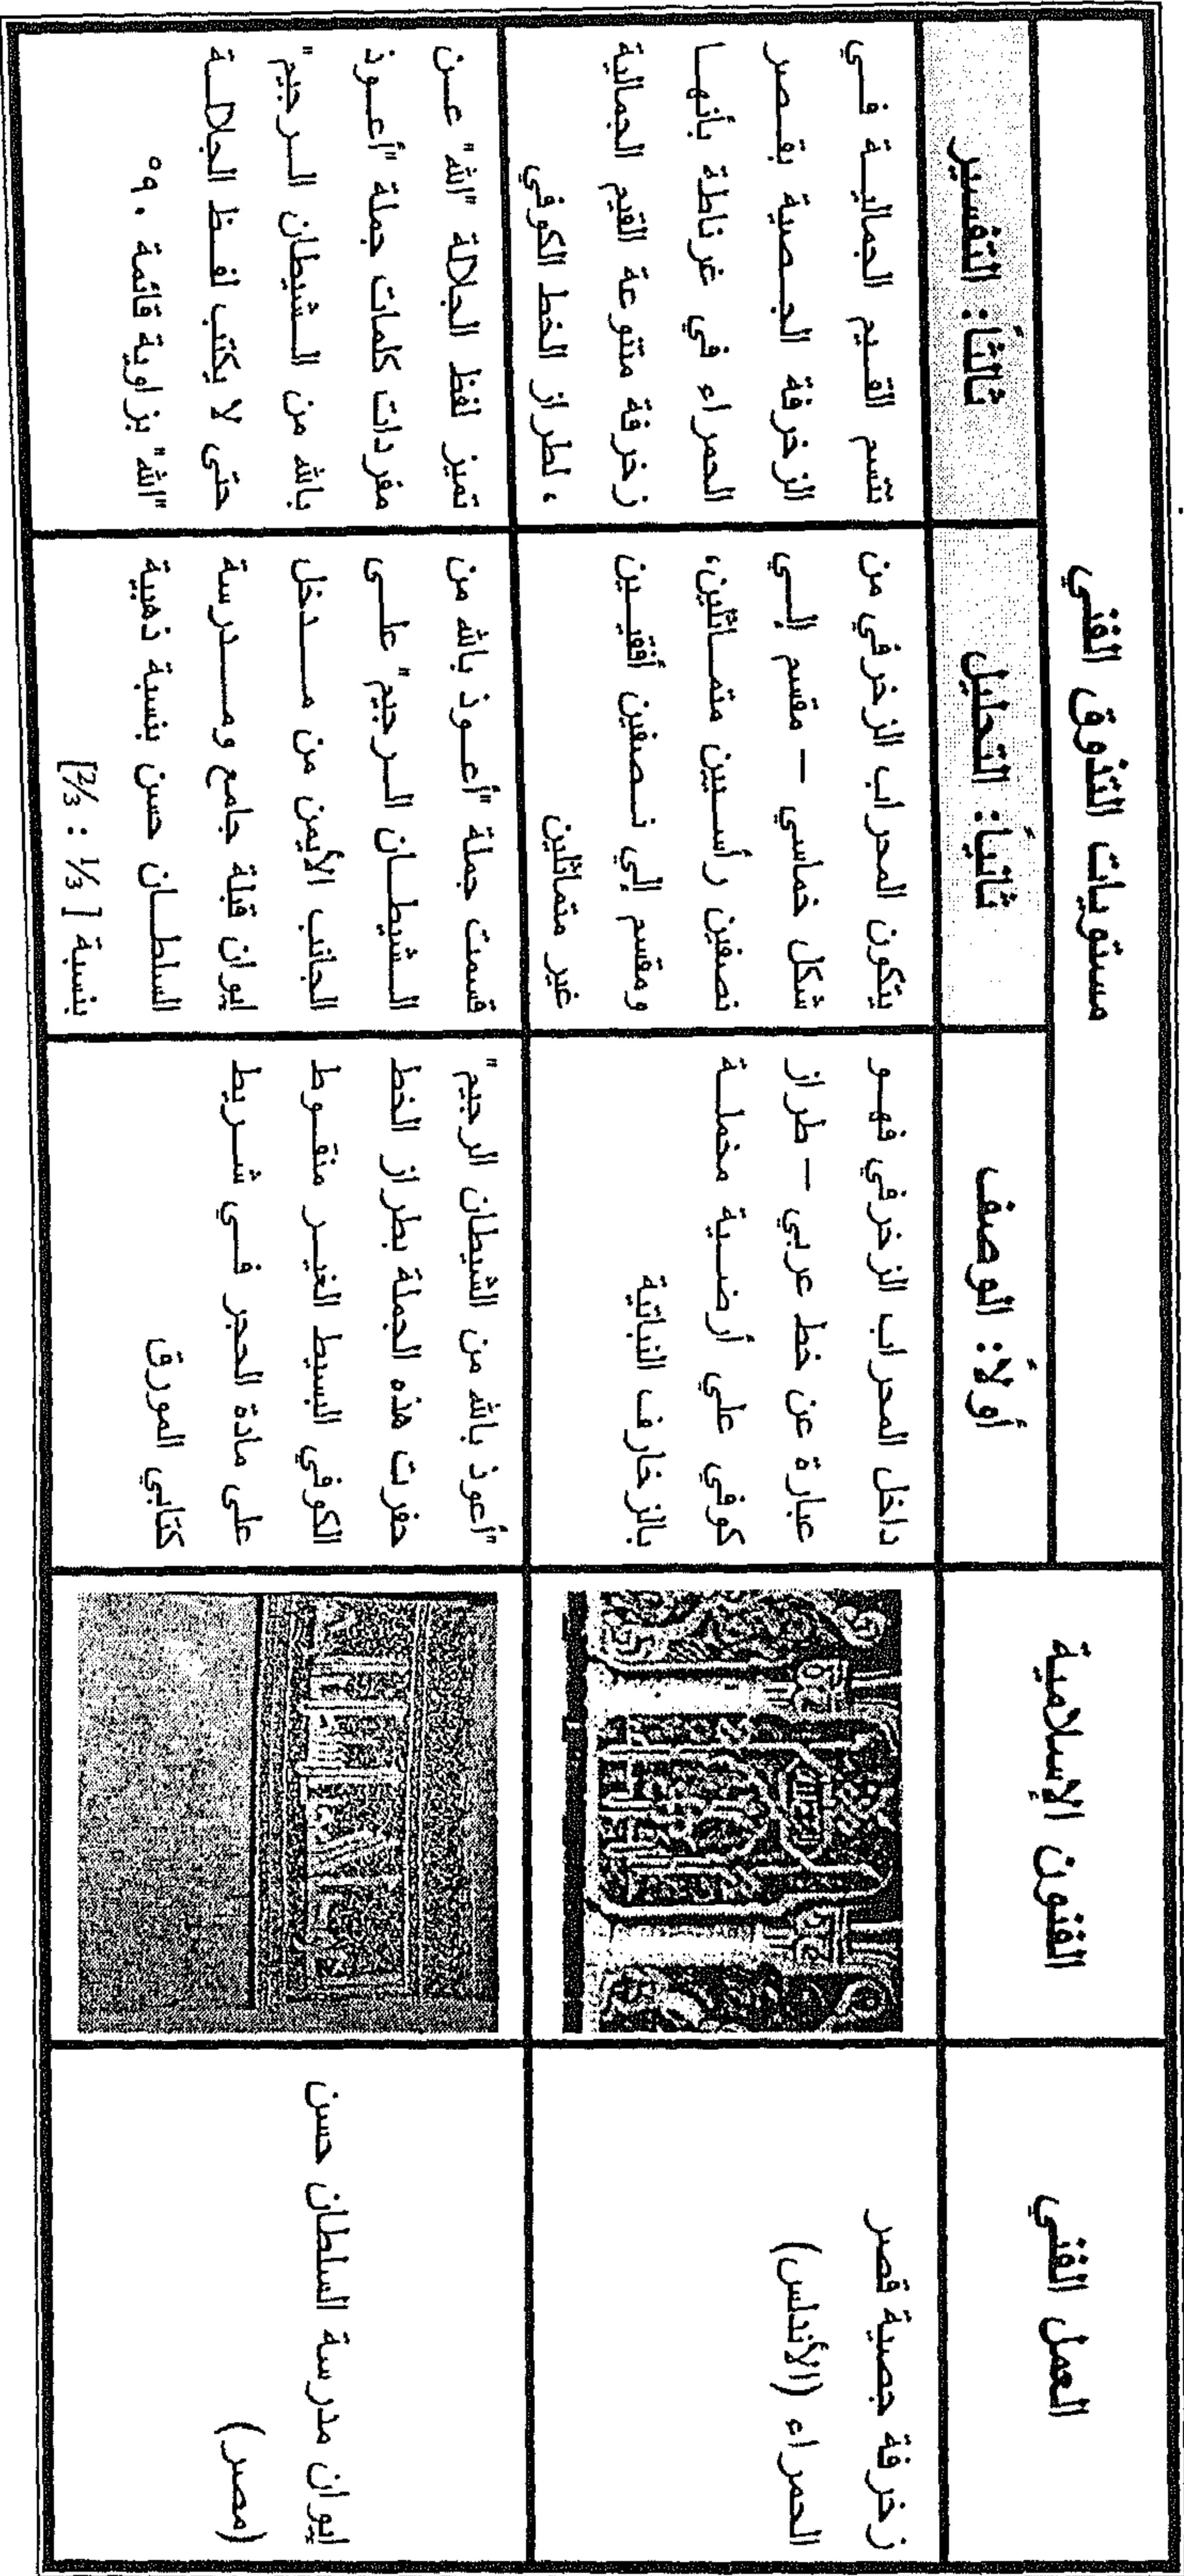 العمل الفني
الفنون الإسلامية
مستويات التذوق الفني
أولاً: الوصف
ثانياً: التحليل
ثالثاً: التفسير
زخرفة جصية قصر
الحمراء (الأندلس)
داخل المحراب الزخرفي فهو
عبارة عن خط عربي – طراز
كوفي علي أرضية مخملة
بالزخارف النباتية
يتكون المحراب الزخرفي من
شكل خماسي – مقسم إلي
نصفين رأسيين متماثلين،
ومقسم إلي نصفين أفقيين
غير متماثلين
تتسم القيم الجمالية في
الزخرفة الجصية بقصر
الحمراء في غرناطة بأنها
زخرفة متنوعة القيم الجمالية
، لطراز الخط الكوفي
إيوان مدرسة السلطان حسن
(مصر)
"أعوذ بالله من الشيطان الرجيم"
حفرت هذه الجملة بطراز الخط
الكوفي البسيط الغير منقوط
على مادة الحجر في شريط
كتابي المورق
قسمت جملة "أعوذ بالله من
الشيطان الرجيم" على
الجانب الأيمن من مدخل
ايوان قبلة جامع ومدرسة
السلطان حسن بنسبة ذهبية
بنسبة [ ⅓ : ⅔]
تميز لفظ الجلالة "الله" عن
مفردات كلمات جملة "أعوذ
بالله من الشيطان الرجيم"
حتى لا يكتب لفظ الجلالة
"الله" بزاوية قائمة ٩٠°